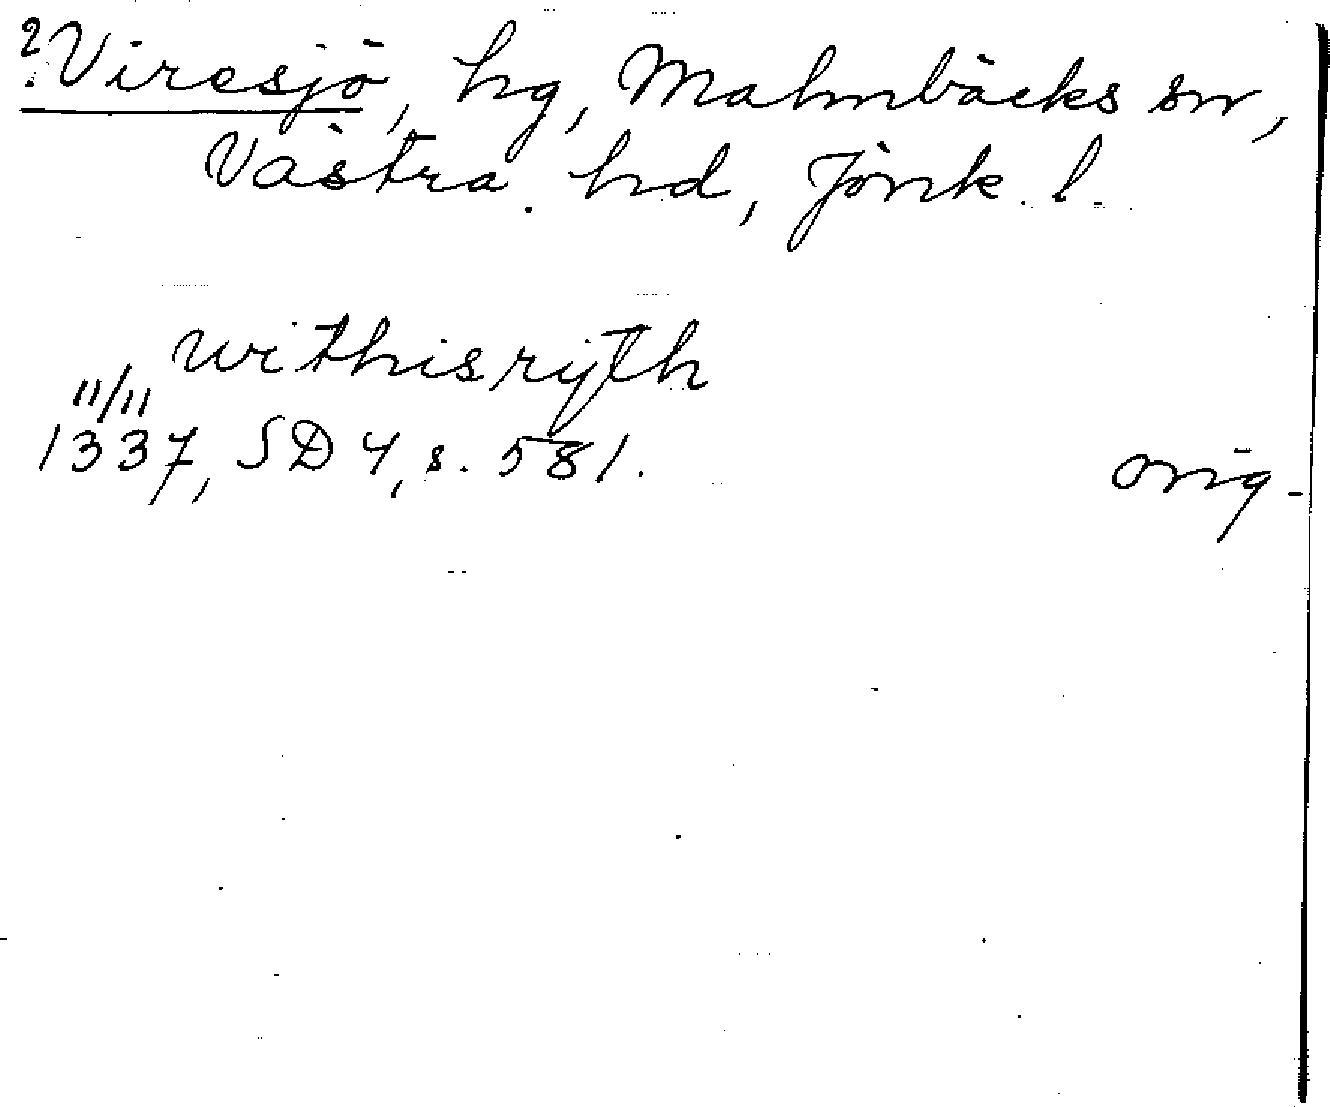 ?Viresjö, hg, Malmbäcks sn,
Västra hd, Jönk. l.
withisryth
11/11
1337, SD 4, s. 581.
orig.